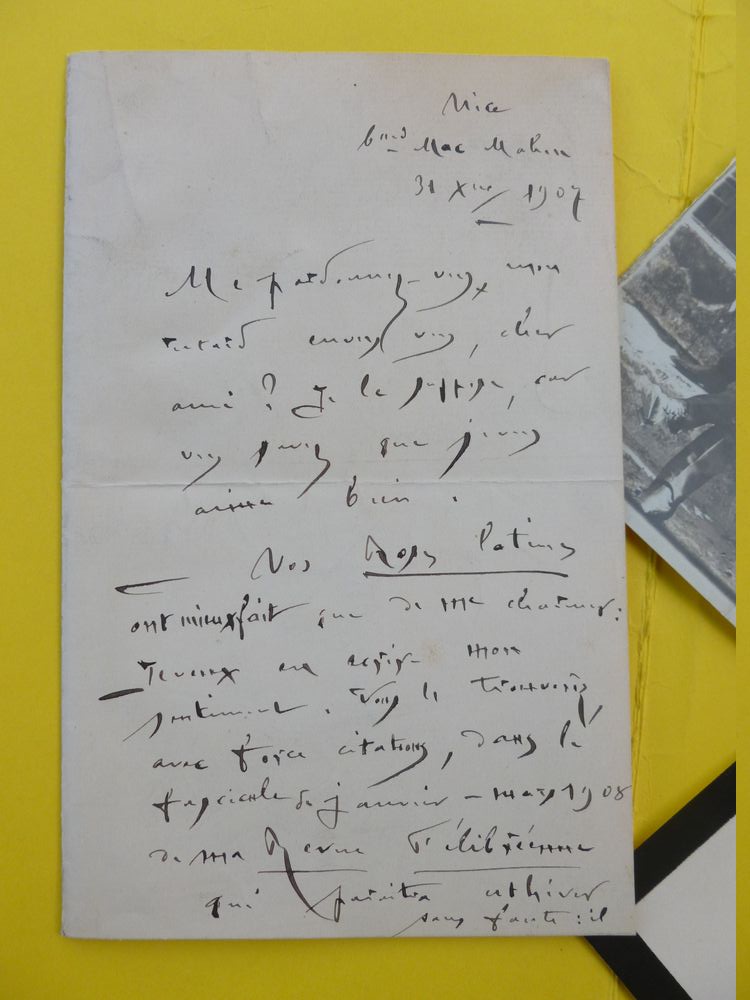 Nice
b^ard Mac Mahon
31 Xbre / 1907
Me pardonnez-vous, mon
retard envers vous, cher
ami ? Je le suppose, car
vous savez que je vous
aime bien.
Vos Roses latines
ont mieux fait que de me charmer :
Je veux en écrire mon
sentiment. Vous le trouverez,
avec force citations, dans le
fascicule de janvier - mars 1908
de ma Revue Félibréenne
qui paraitra cet hiver
sans faute : il